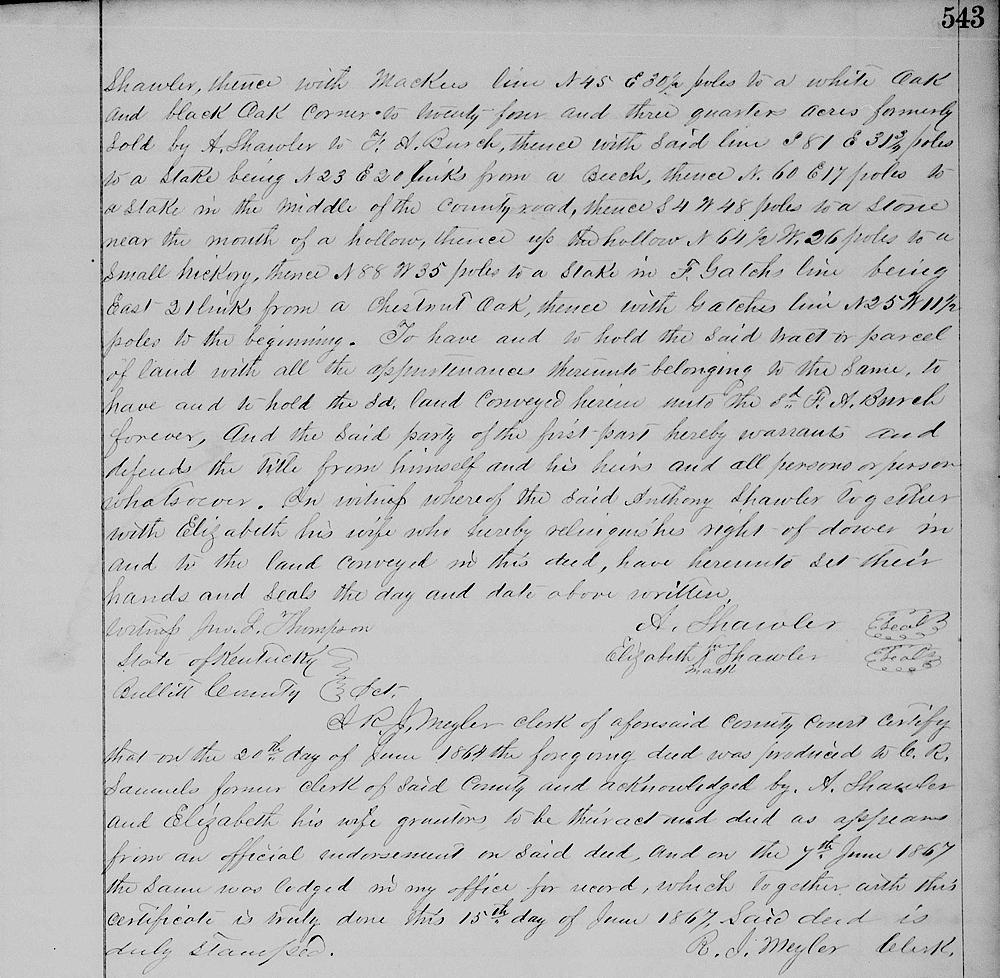 543
Shawler, thence with Mackees line N 45 E 30½ poles to a white Oak
and black Oak corner to twenty four and three quarters acres formerly
Sold by A. Shawler to F. A. Burch, thence with Said line S 81 E 31 poles
to a Stake being N 23 E 20 links from a Beech, thence N. 60 E 17 poles to
a Stake in the middle of the County road, thence S 4 W 48 poles to a Stone
near the mouth of a hollow, thence up the hollow N 64½ W. 26 poles to a
Small hickory, thence N 88 W 35 poles to a Stake in F. Gatchs line being
East 21 links from a Chestnut Oak, thence with Gatches line N 25 W 11½
poles to the beginning. To have and to hold the Said tract or parcel
of land with all the appurtenances thereunto belonging to the Same, to
have and to hold the sd. land Conveyed herein unto the sd. F. A. Burch
forever, And the Said party of the first part hereby warrants and
defends the title from himself and his heirs and all persons or person
whatsoever. In witness whereof the Said Anthony Shawler together
with Elizabeth his wife who hereby relinquishes right of dower in
and to the land conveyed in this deed, have hereunto set their
hands and Seals the day and date above written,
Witness Jno. F. Thompson A. Shawler Seal
State of Kentucky Elizabeth her mark Shawler Seal
Bullitt County Sct.
I R. J. Meyler Clerk of aforesaid County Court Certify
that on the 20th day of June 1864 the foregoing deed was produced to C. R.
Samuels former Clerk of Said County and acknowledged by. A. Shawler
and Elizabeth his wife grantors to be their act and deed as appears
from an official endorsement on Said deed, and on the 7th June 1867
the Same was lodged in my office for record, which together with this
Certificate is truly done this 15th day of June 1867, Said deed is
duly Stamped. R. J. Meyler Clerk.